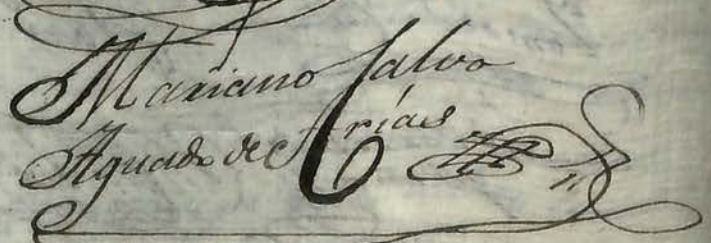 Mariano Calvo
Aguado de Arías